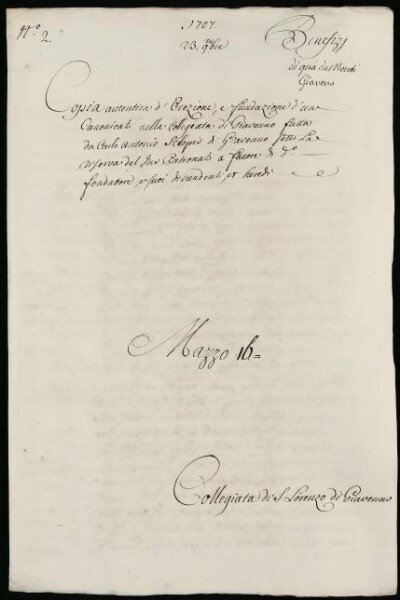 N.º 2.
1707.
23. 9bre
Benefizj
di quà da Monti
Giaveno
Copia autentica d'Erezione, e fundazione d'un
Canonicato nella Collegiata di Giavenno fatta
da Carlo Antonio Sclopis di Giavenno sotto la
riserva del Jus Patronato a favore di d.º
fondatore, e suoi descendenti, et heredi
Mazzo 16=
Collegiata di S. Lorenzo di Giavenno